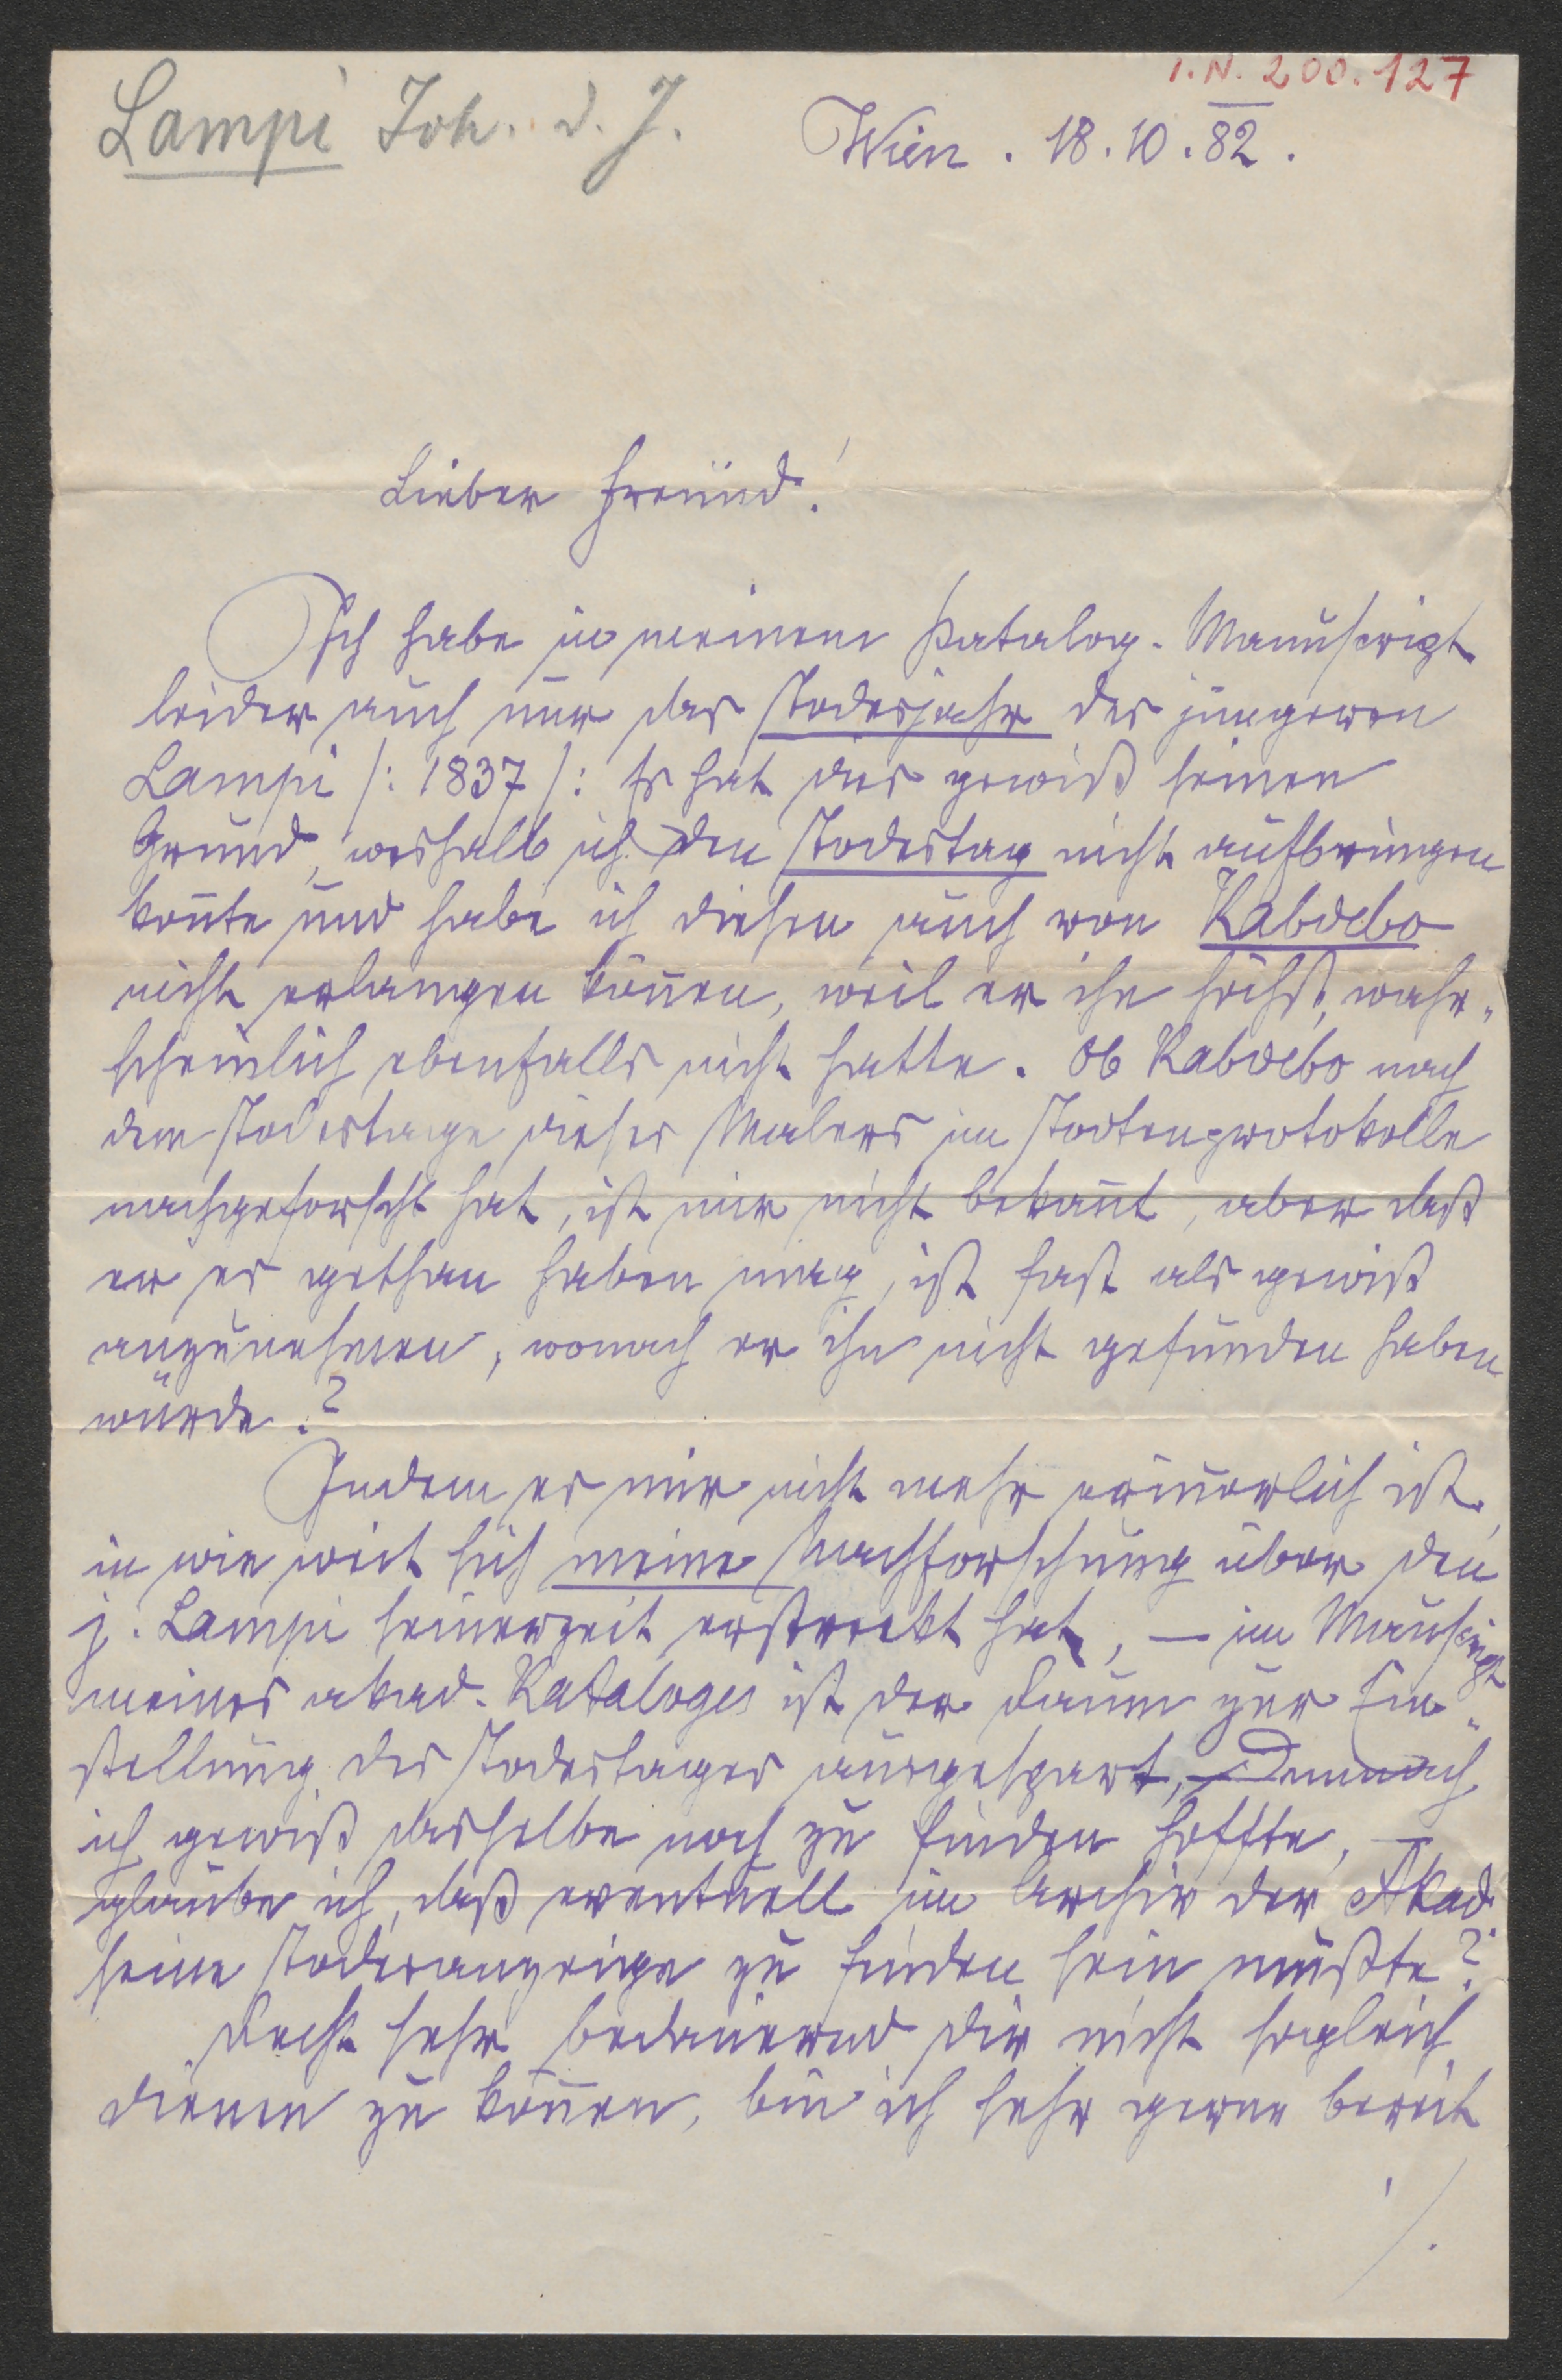 I.N. 200.127
Lampi Joh. d. J.
Wien. 18.10.82.
Lieber Freund!
Ich habe in meinem Katalog-Manuscript
leider auch nur das Todesjahr des jüngeren
Lampi /: 1837 /: Es hat dies gewiß seinen
Grund, weshalb ich den Todestag nicht aufbringen
kon̄te und habe ich diesen auch von Kabdebo
nicht erlangen kön̄en, weil er ihn höchst wahr„
scheinlich ebenfalls nicht hatte. Ob Kabdebo nach
dem Todestage dieses Malers im Todtenprotokolle
nachgeforscht hat, ist mir nicht bekan̄t, aber daß
er es gethan haben mag, ist fast als gewiß
anzunehmen, wonach er ihn nicht gefunden haben
würde.?
Indem es mir nicht mehr erin̄erlich ist,
in wie weit sich meine Nachforschung über den
j. Lampi seinerzeit erstreckt hat, — im Manuscript
meines akad. Kataloges ist der Raum zur Ein„
stellung des Todestages ausgespart, Demnach
ich gewiß denselben noch zu finden hoffte, —
glaube ich, daß eventuell im Archiv der Akad.
seine Todesanzeige zu finden sein müßte?
Recht sehr bedauernd dir nicht sogleich
dienen zu kön̄en, bin ich sehr gerne bereit
./.